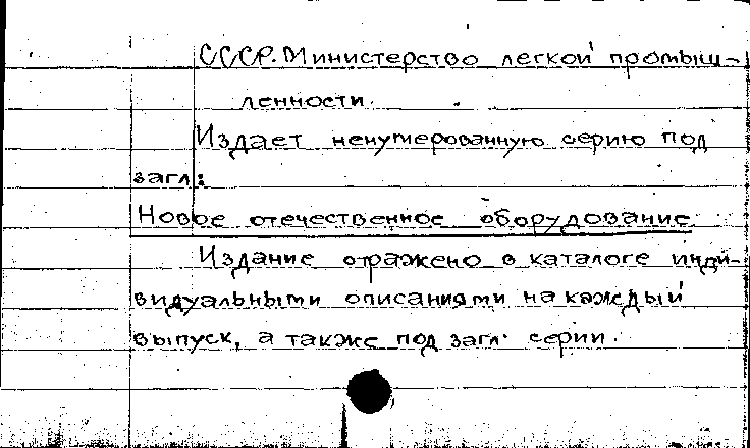 СССР. Министерство легкой промыш-
ленности.
Издает ненумерованную серию под
загл:
Новое отечественное оборудование
Издание отражено в каталоге инди-
видуальными описаниями на каждый
выпуск, а также под загл. серии.